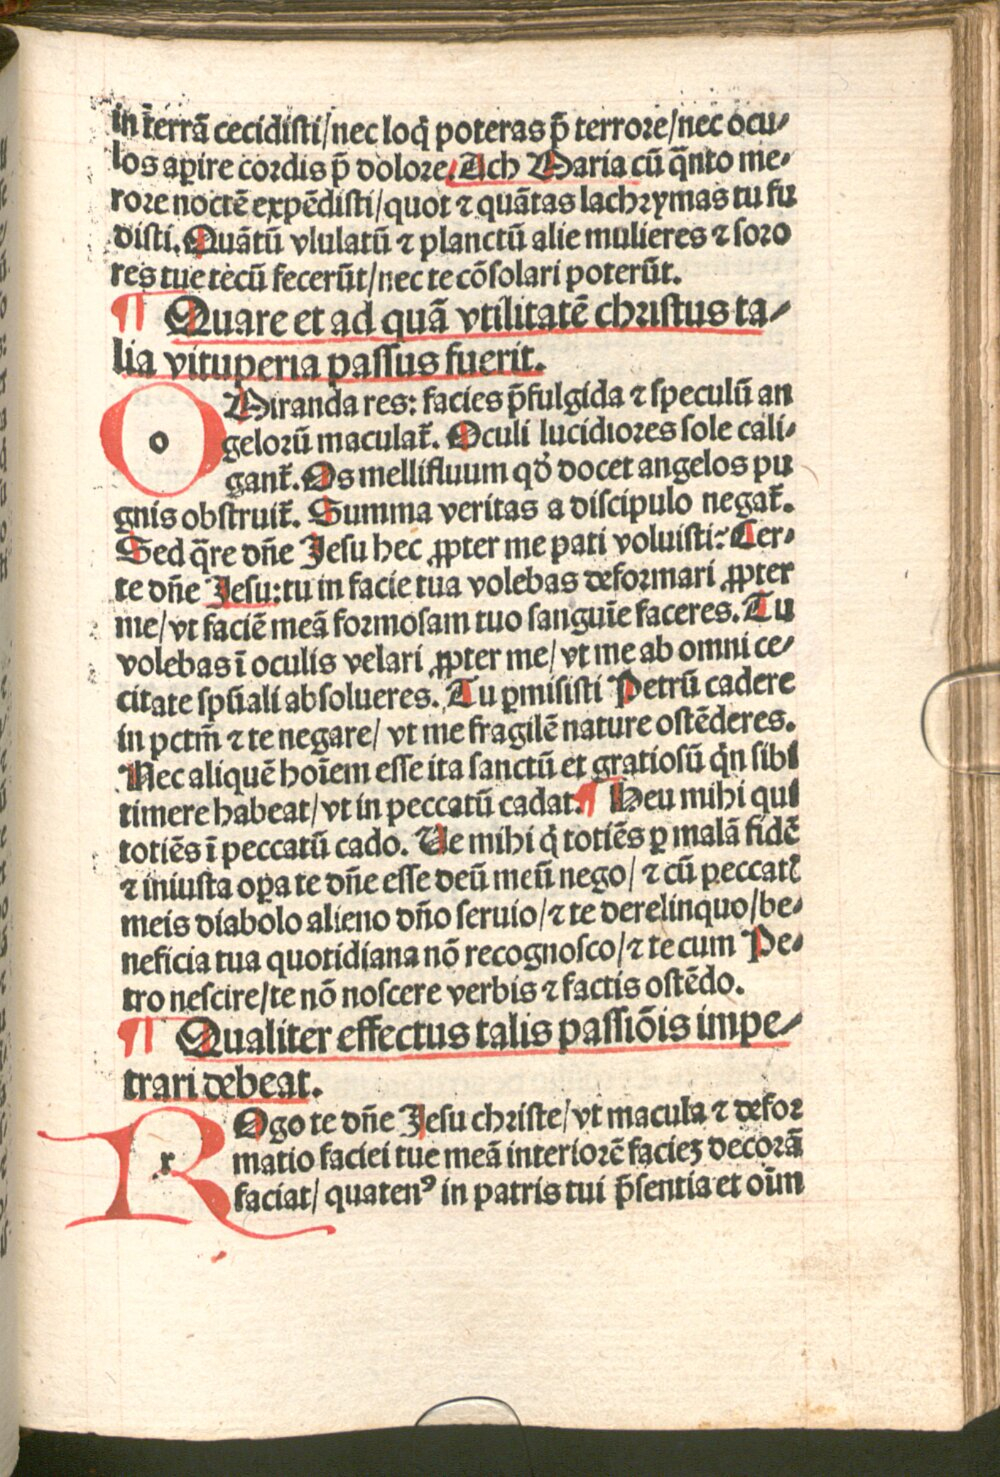 in t̄errā cecidisti/nec loq̄ poteras p̄ terrore/nec ocu-
los aꝑire cordis p̄ dolore. Ach Maria cū q̄nto me-
rore noctē expēdisti/quot ⁊ quātas lachrymas tu fu
disti. Quātū vlulatū ⁊ planctū alie mulieres ⁊ soro
res tue tecū fecerūt/nec te cōsolari poterūt.
¶ Quare et ad quā vtilitatē christus ta-
lia vituperia passus fuerit.
O Miranda res: facies p̄fulgida ⁊ speculū an
gelorū maculat̄. Oculi lucidiores sole cali-
gant̄. Os mellifluum qd̄ docet angelos pu
gnis obstruit̄. Summa veritas a discipulo negat̄.
Sed q̄re dn̄e Jesu hec ꝓpter me pati voluisti: Cer-
te dn̄e Jesu: tu in facie tua volebas deformari ꝓpter
me/vt faciē meā formosam tuo sanguīe faceres. Tu
volebas ī oculis velari ꝓpter me/vt me ab omni ce-
citate spūali absolueres. Tu ꝑmisisti Petrū cadere
in pctm̄ ⁊ te negare/vt me fragilē nature ostēderes.
Nec aliquē hoīem esse ita sanctū et gratiosū q̄n sibi
timere habeat/vt in peccatū cadat. ¶ Heu mihi qui
totiēs ī peccatū cado. Ue mihi q̄ totiēs ꝑ malā fidē
⁊ iniusta oꝑa te dn̄e esse deū meū nego/⁊ cū peccatꝭ
meis diabolo alieno dn̄o seruio/⁊ te derelinquo/be-
neficia tua quotidiana nō recognosco/⁊ te cum Pe-
tro nescire/te nō noscere verbis ⁊ factis ostēdo.
¶ Qualiter effectus talis passiōis impe-
trari debeat.
R Ogo te dn̄e Jesu christe/vt macula ⁊ defor
matio faciei tue meā interiorē facieʒ decorā
faciat/quatenꝰ in patris tui p̄sentia et oīm